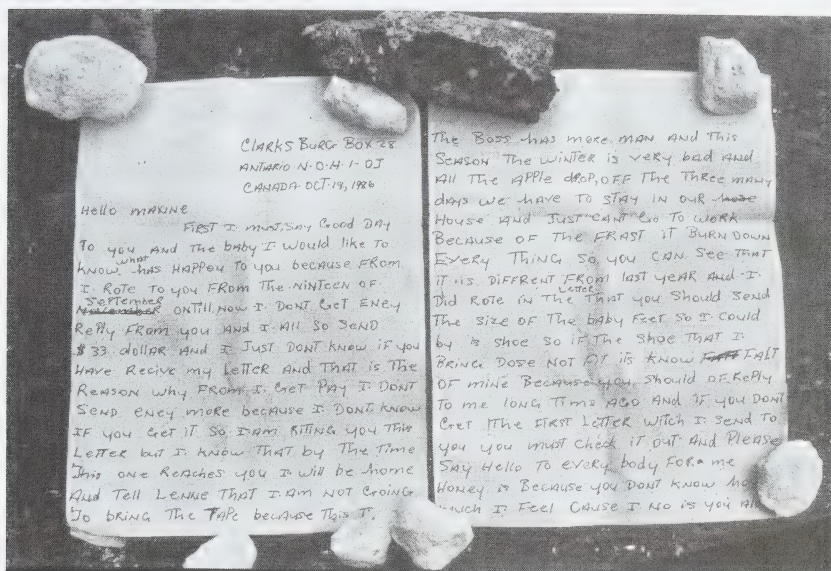 CLARKS BURG BOX 28
ANTARIO N-O-H-1-OJ
CANADA-OCT-19, 1986
Hello MAXINE
FIRST I MUST, SAY GOOD DAY
TO YOU AND THE BABY I WOULD LIKE TO
KNOW what HAS HAPPEN TO YOU BECAUSE FROM
I ROTE TO YOU FROM THE NINTEEN OF
September ONTILL NOW I DONT GET ENEY
REPLY FROM YOU AND I ALL SO SEND
$ 33 dollar AND I JUST DONT KNOW IF YOU
HAVE RECIVE MY LETTER AND THAT IS THE
REASON WHY FROM I GET PAY I DONT
SEND ENEY MORE BECAUSE I DONT KNOW
IF YOU GET IT SO I AM RITING YOU THIS
LETTER but I KNOW THAT BY THE TIME
THIS ONE REACHES YOU I WILL BE home
AND TELL LENNE THAT I AM NOT GOING
TO BRING THE TAPE because THIS I.
THE BOSS HAS MORE MAN AND THIS
SEASON THE WINTER IS VERY BAD AND
ALL THE APPLE dROP, OFF THE THREE MANY
DAYS WE HAVE TO STAY IN OUR
HOUSE AND JUST CANT GO TO WORK
BECAUSE OF THE FRAST IT BURN DOWN
EVERY THING SO, YOU CAN SEE THAT
IT IS DIFFRENT FROM LAST YEAR AND I
DID ROTE IN THE Letter THAT YOU SHOULD SEND
THE SIZE OF THE BABY FEET SO I COULD
BY IS SHOE SO IF THE SHOE THAT I
BRING DOSE NOT FIT ITS KNOW FALT
OF MINE BECAUSE YOU SHOULD OF REPLY
TO ME LONG TIME AGO AND IF YOU DONT
GET THE FIRST LETTER WITCH I SEND TO
YOU YOU MUST CHECK IT OUT AND PLEASE
SAY HELLO TO EVERY BODY FOR me
HONEY IS BECAUSE YOU DONT KNOW
much I FEEL CAUSE I NO IS YOU